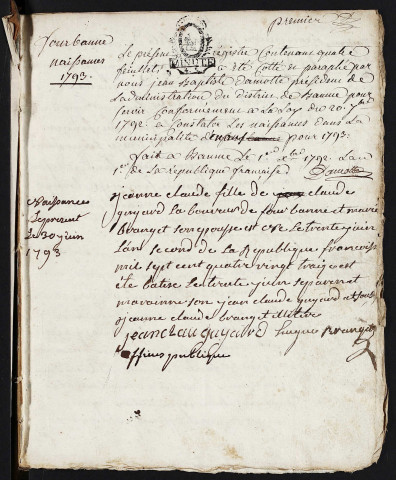 premier
fourbanne
naissances
1793.
Le présent Registre Contenant quatre
feuillets a été Cotté et paraphé par
nous jean baptiste Damotte président de
L'administration du district de Baume pour
servir Conformement a La Loy du 20. 7bre
1792. a Constater Les naissances dans La
municipalité de pour 1793.
Fait a Baume Le 1er Xbre 1792. L'an
1er de La republique françoise Damotte
Naissances
Le present
Le 30 juin
1793
jeanne claude fille de claude
guyard la boureur de fourbanne et marie
Branget son epousse est née le trante juin
Lans second de la Republique francoise
mil sept cent quatre vingt traize est
ete batisé le trante juin
marainne son jean claude guyard et
jeanne claude brangt
jean Clau guyard hugue Brangt
officier publique